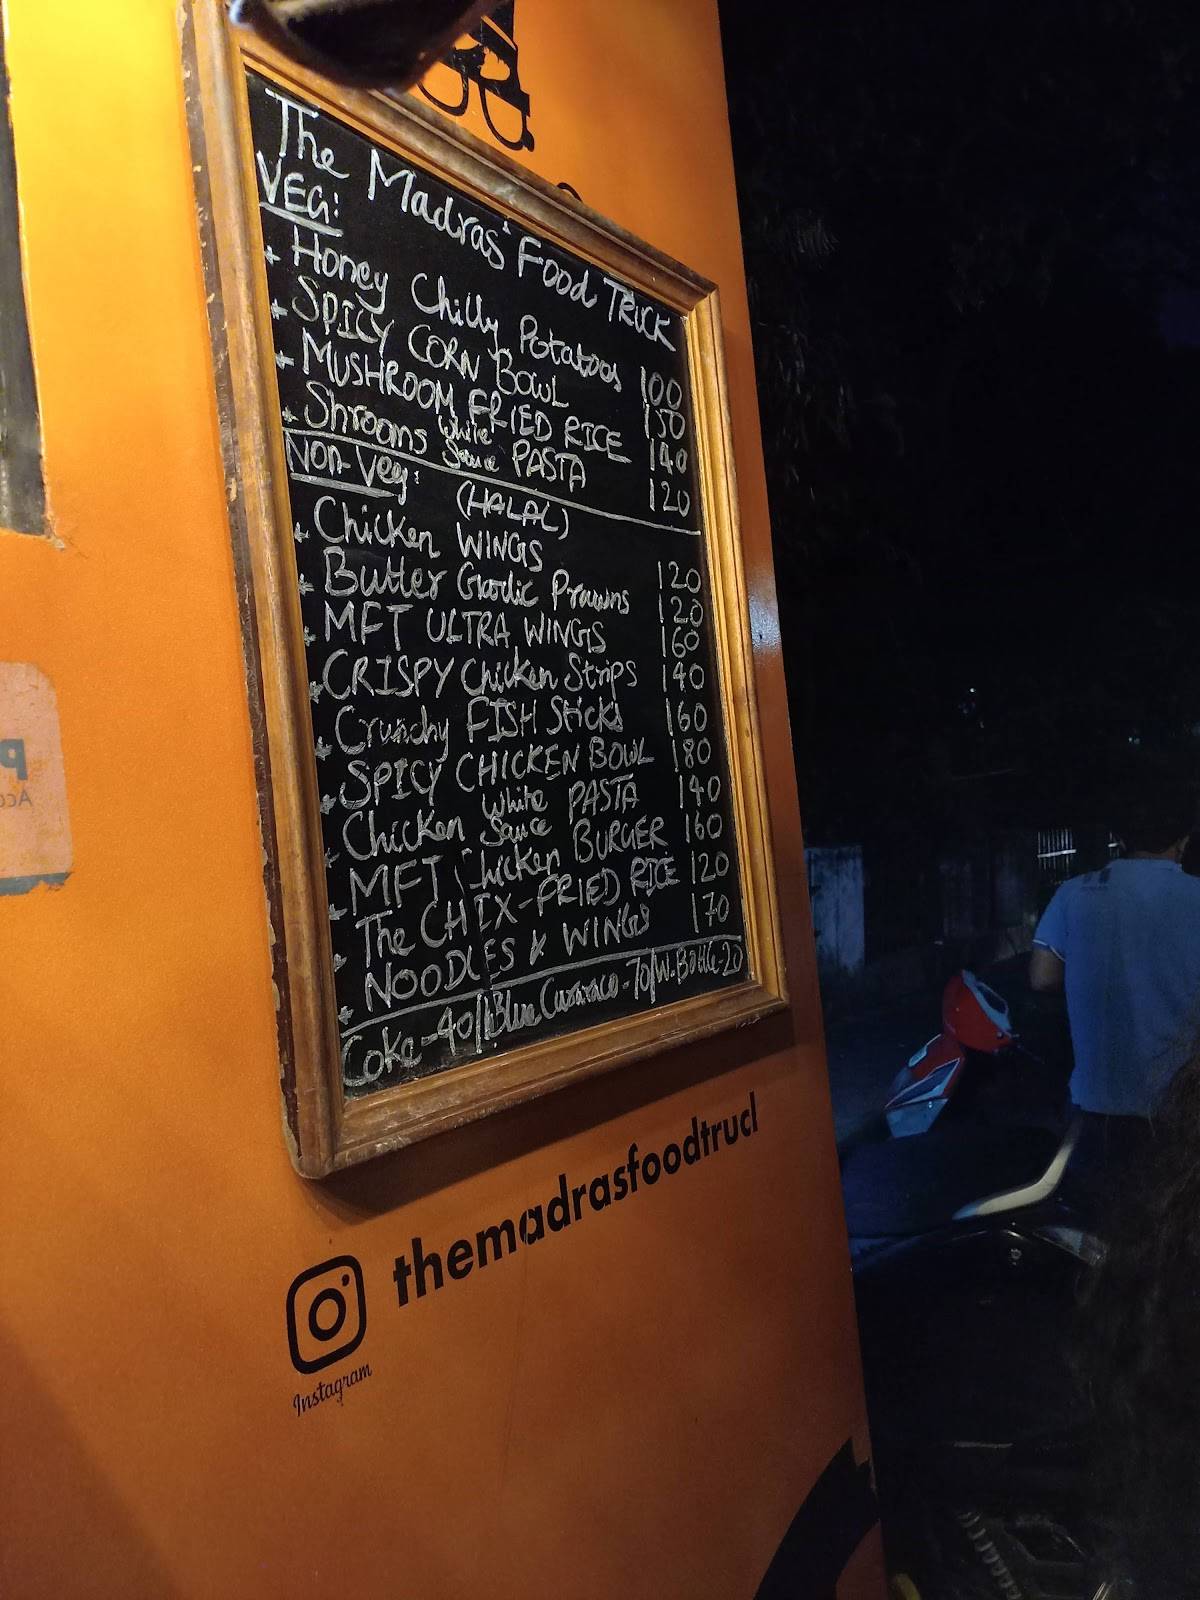 The Madras' Food TRUCK
VEG:
* Honey Chilly Potatoes 100
* SPICY CORN BOWL 150
* MUSHROOM FRIED RICE 140
* Shrooms White Sauce PASTA 120
Non-Veg: (HALAL)
* Chicken WINGS 120
* Butter Garlic Prawns 120
* MFT ULTRA WINGS 160
* CRISPY Chicken Strips 140
* Crunchy FISH Sticks 160
* SPICY CHICKEN BOWL 180
* Chicken White Sauce PASTA 140
* MFT Chicken BURGER 160
* The CHIX-FRIED RICE 120
* NOODLES & WINGS 170
Coke-40/Blue Curaraco-70/W.Bottle-20
themadrasfoodtruck
Instagram